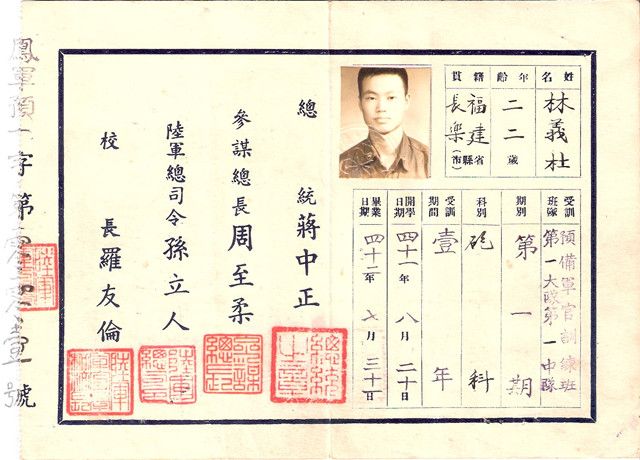 姓名
林義杜
年齡
二二歲
籍貫
福建省
長樂縣(市)
受訓班隊
預備軍官訓練班
第一大隊第一中隊
期別
第一期
科別
砲科
受訓期間
壹年
開學日期
四十一年八月二十日
畢業日期
四十二年七月三十一日
總統蔣中正
總統之章
參謀總長周至柔
陸軍總司令孫立人
校長羅友倫
鳳軍預一字第
號